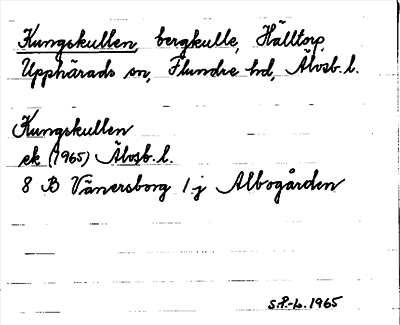 Kungskullen, bergkulle, Hälltorp,
Upphärads sn, Flundre hd, Älvsb. l.
Kungskullen
ek (1965) Älvsb. l.
8 B Vänersborg 1 j Albogården
S.P-L. 1965